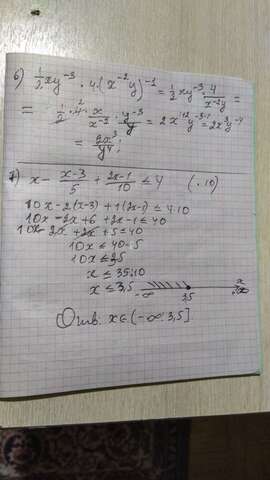 6) 1/2 xy⁻³ · 4·(x⁻²y)⁻¹ = 1/2 xy⁻³ · 4/(x⁻²y) =
= 1/2 · 4 · x/x⁻² · y⁻³/y = 2x¹⁺²y⁻³⁻¹ = 2x³y⁻⁴
= 2x³/y⁴;
7) x - (x-3)/5 + (2x-1)/10 ≤ 4 (·10)
10x - 2(x-3) + 1(2x-1) ≤ 4·10
10x - 2x + 6 + 2x - 1 ≤ 40
10x - 2x + 2x + 5 = 40
10x ≤ 40-5
10x ≤ 35
x ≤ 35:10
x ≤ 3,5
-∞ 3,5 x
Отв: x∈(-∞; 3,5]